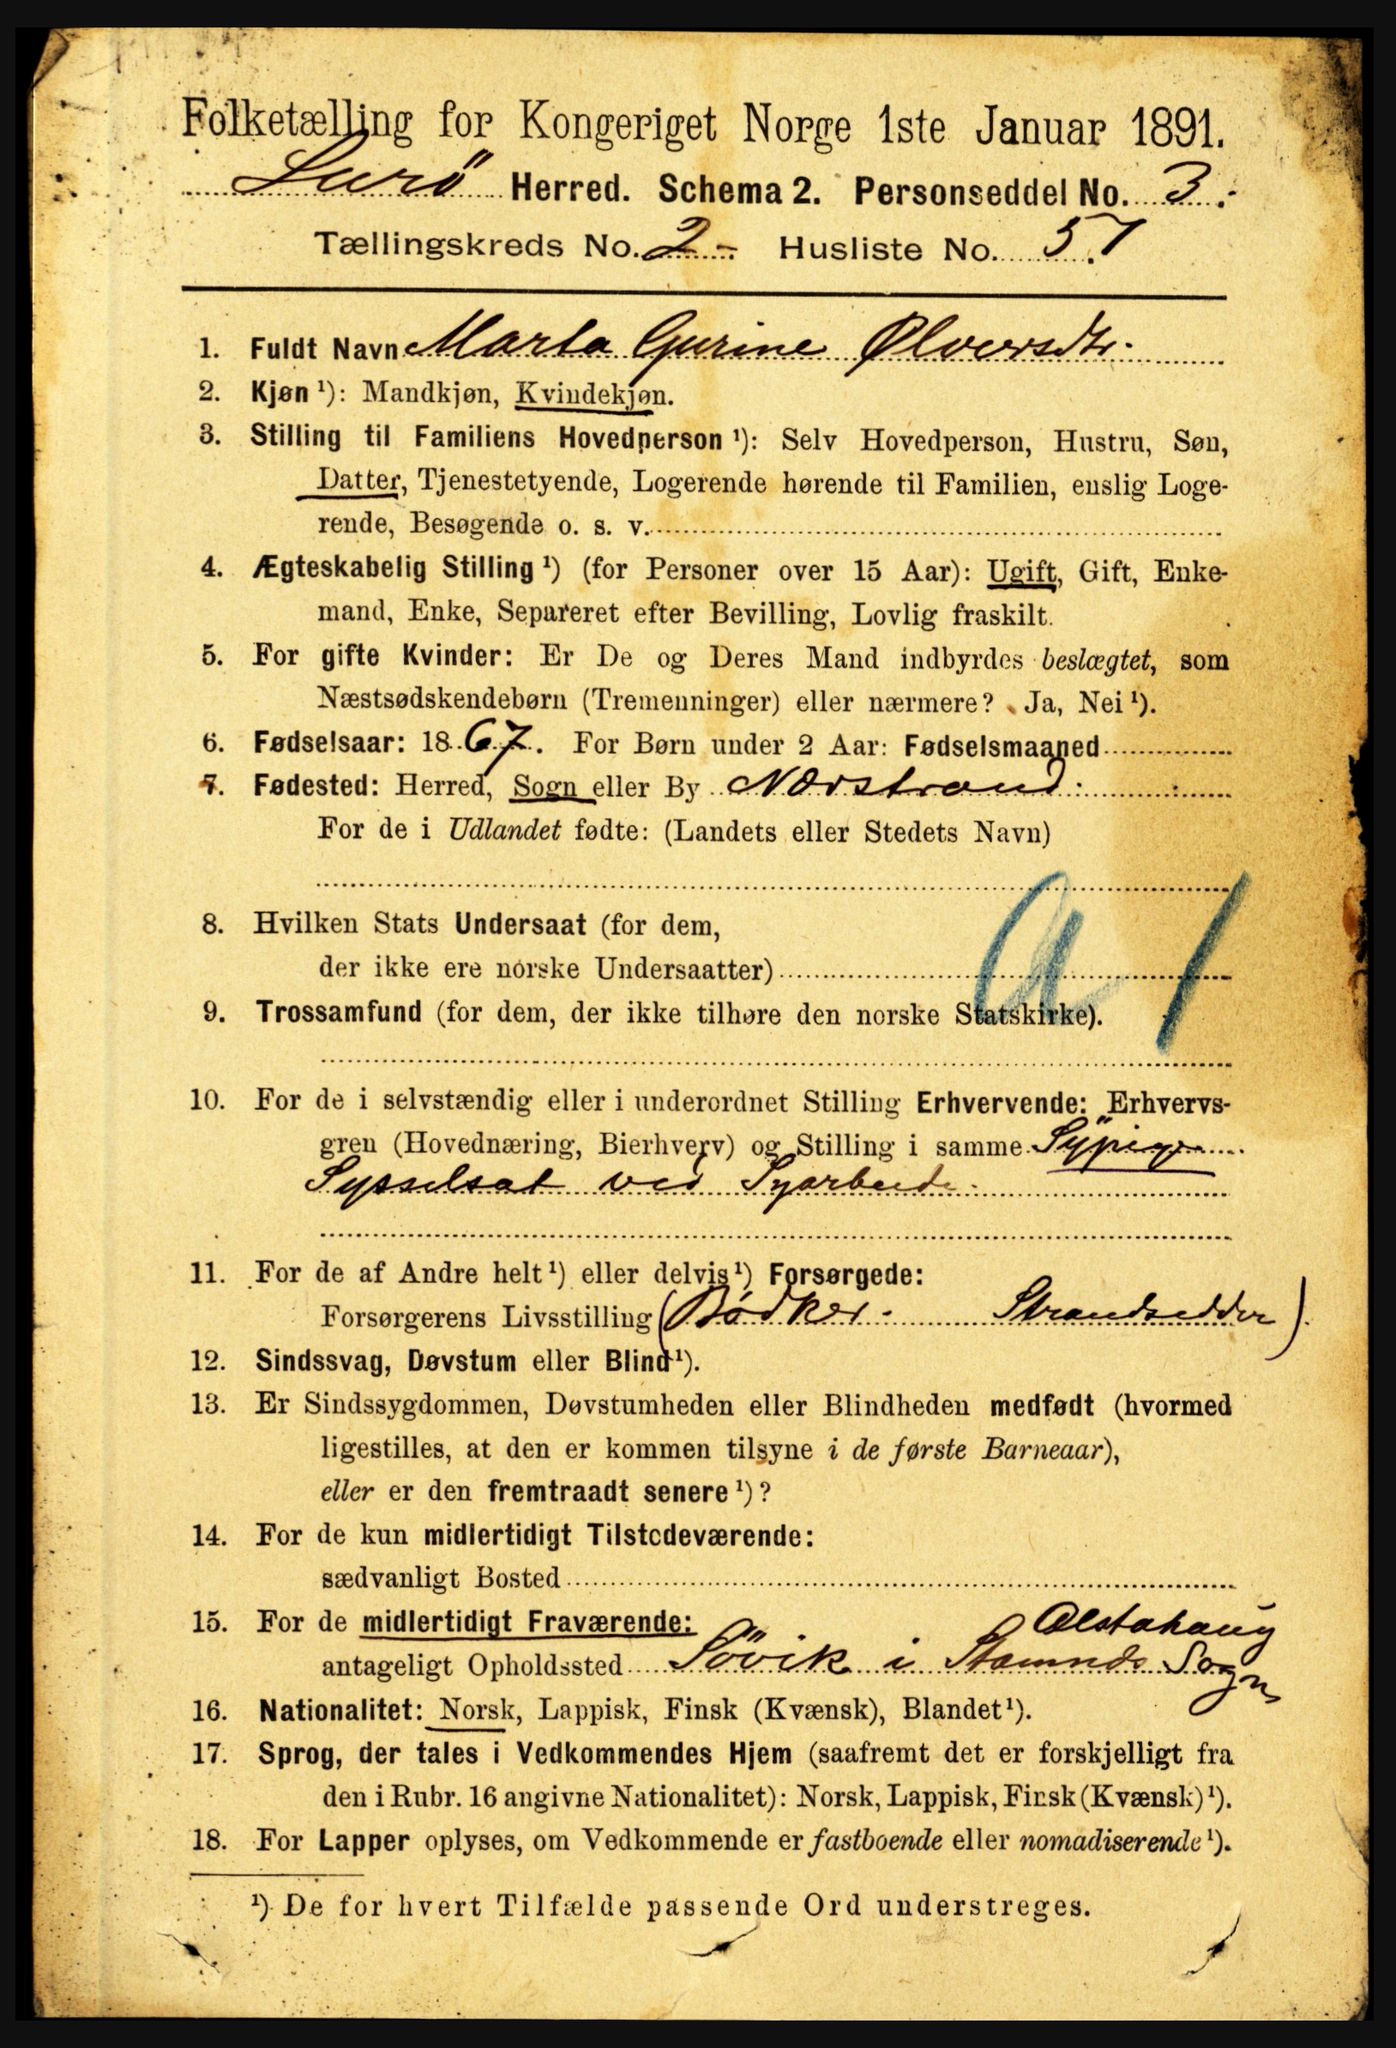 Folketælling for Kongeriget Norge 1ste Januar 1891.
Lurö Herred. Schema 2. Personseddel No. 3.
Tællingskreds No. 2 Husliste No. 57
1. Fuldt Navn Marta Gurine Ølversdtr.
2. Kjøn ¹): Mandkjøn, Kvindekjøn.
3. Stilling til Familiens Hovedperson ¹): Selv Hovedperson, Hustru, Søn,
Datter, Tjenestetyende, Logerende hørende til Familien, enslig Loge-
rende, Besøgende o. s. v.
4. Ægteskabelig Stilling ¹) (for Personer over 15 Aar): Ugift, Gift, Enke-
mand, Enke, Separeret efter Bevilling, Lovlig fraskilt.
5. For gifte Kvinder: Er De og Deres Mand indbyrdes beslægtet, som
Næstsødskendebørn (Tremenninger) eller nærmere? Ja, Nei ¹).
6. Fødselsaar: 1867. For Børn under 2 Aar: Fødselsmaaned
7. Fødested: Herred, Sogn eller By Nærstrand
For de i Udlandet fødte: (Landets eller Stedets Navn)
8. Hvilken Stats Undersaat (for dem,
der ikke ere norske Undersaatter)
a 1
9. Trossamfund (for dem, der ikke tilhøre den norske Statskirke).
10. For de i selvstændig eller i underordnet Stilling Erhvervende: Erhvervs-
gren (Hovednæring, Bierhverv) og Stilling i samme Sÿpige
Sysselsat ved Syarbeide
11. For de af Andre helt ¹) eller delvis ¹) Forsørgede:
Forsørgerens Livsstilling (Bödker. Strandsidder)
12. Sindssvag, Døvstum eller Blind ¹).
13. Er Sindssygdommen, Døvstumheden eller Blindheden medfødt (hvormed
ligestilles, at den er kommen tilsyne i de første Barneaar),
eller er den fremtraadt senere ¹)?
14. For de kun midlertidigt Tilstedeværende:
sædvanligt Bosted
15. For de midlertidigt Fraværende:
Alstahaug
antageligt Opholdssted Søvik i Stamnds Sogn
16. Nationalitet: Norsk, Lappisk, Finsk (Kvænsk), Blandet ¹).
17. Sprog, der tales i Vedkommendes Hjem (saafremt det er forskjelligt fra
den i Rubr. 16 angivne Nationalitet): Norsk, Lappisk, Finsk (Kvænsk) ¹).
18. For Lapper oplyses, om Vedkommende er fastboende eller nomadiserende ¹).
¹) De for hvert Tilfælde passende Ord understreges.